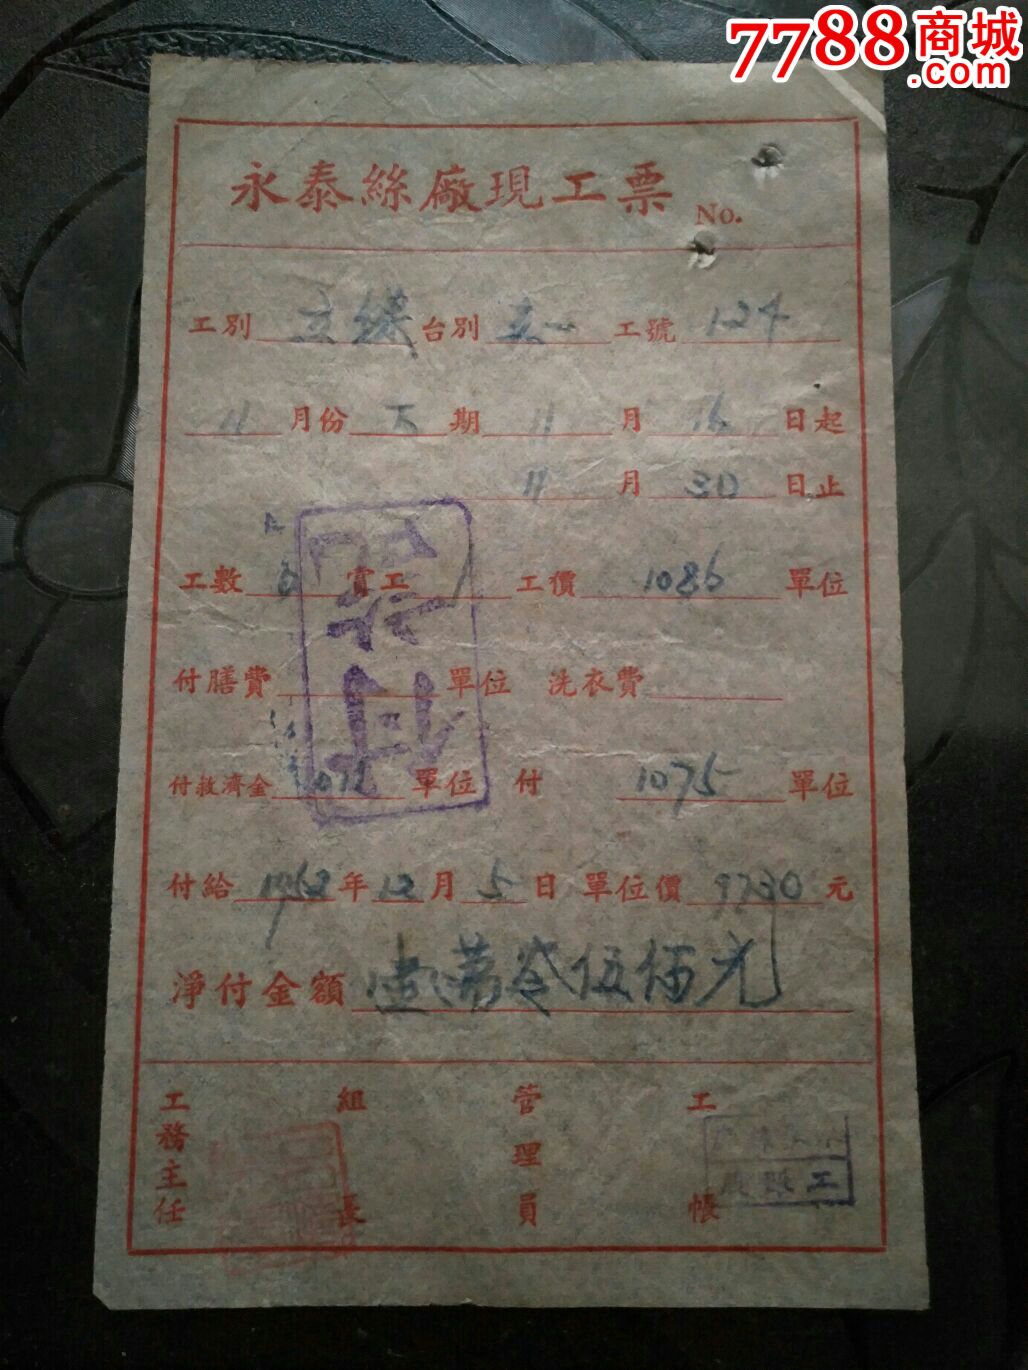 7788商城
.com
永泰絲廠現工票 No.
工別 立繰 台別 工號 124
11 月份 下 期 11 月 16 日起
11 月 30 日止
工數 工 工價 1086 單位
付膳費 單位 洗衣費
付救濟金 單位 付 1075 單位
付給 年 12 月 5 日 單位價 9730 元
淨付金額 壹萬零伍佰元
工務主任 組長 管理員 工帳